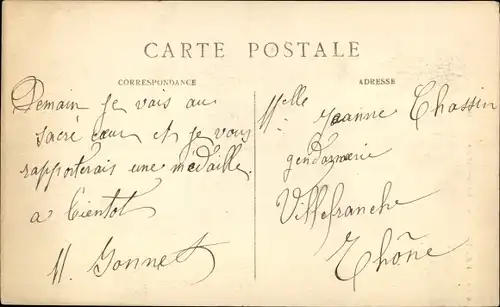 CARTE POSTALE
CORRESPONDANCE
Demain je vais au
sacré cœur et je vous
rapporterais une médaille.
a bientot
M. Gonnet
ADRESSE
Melle Jeanne Chassin
gendarmerie
Villefranche
Rhône